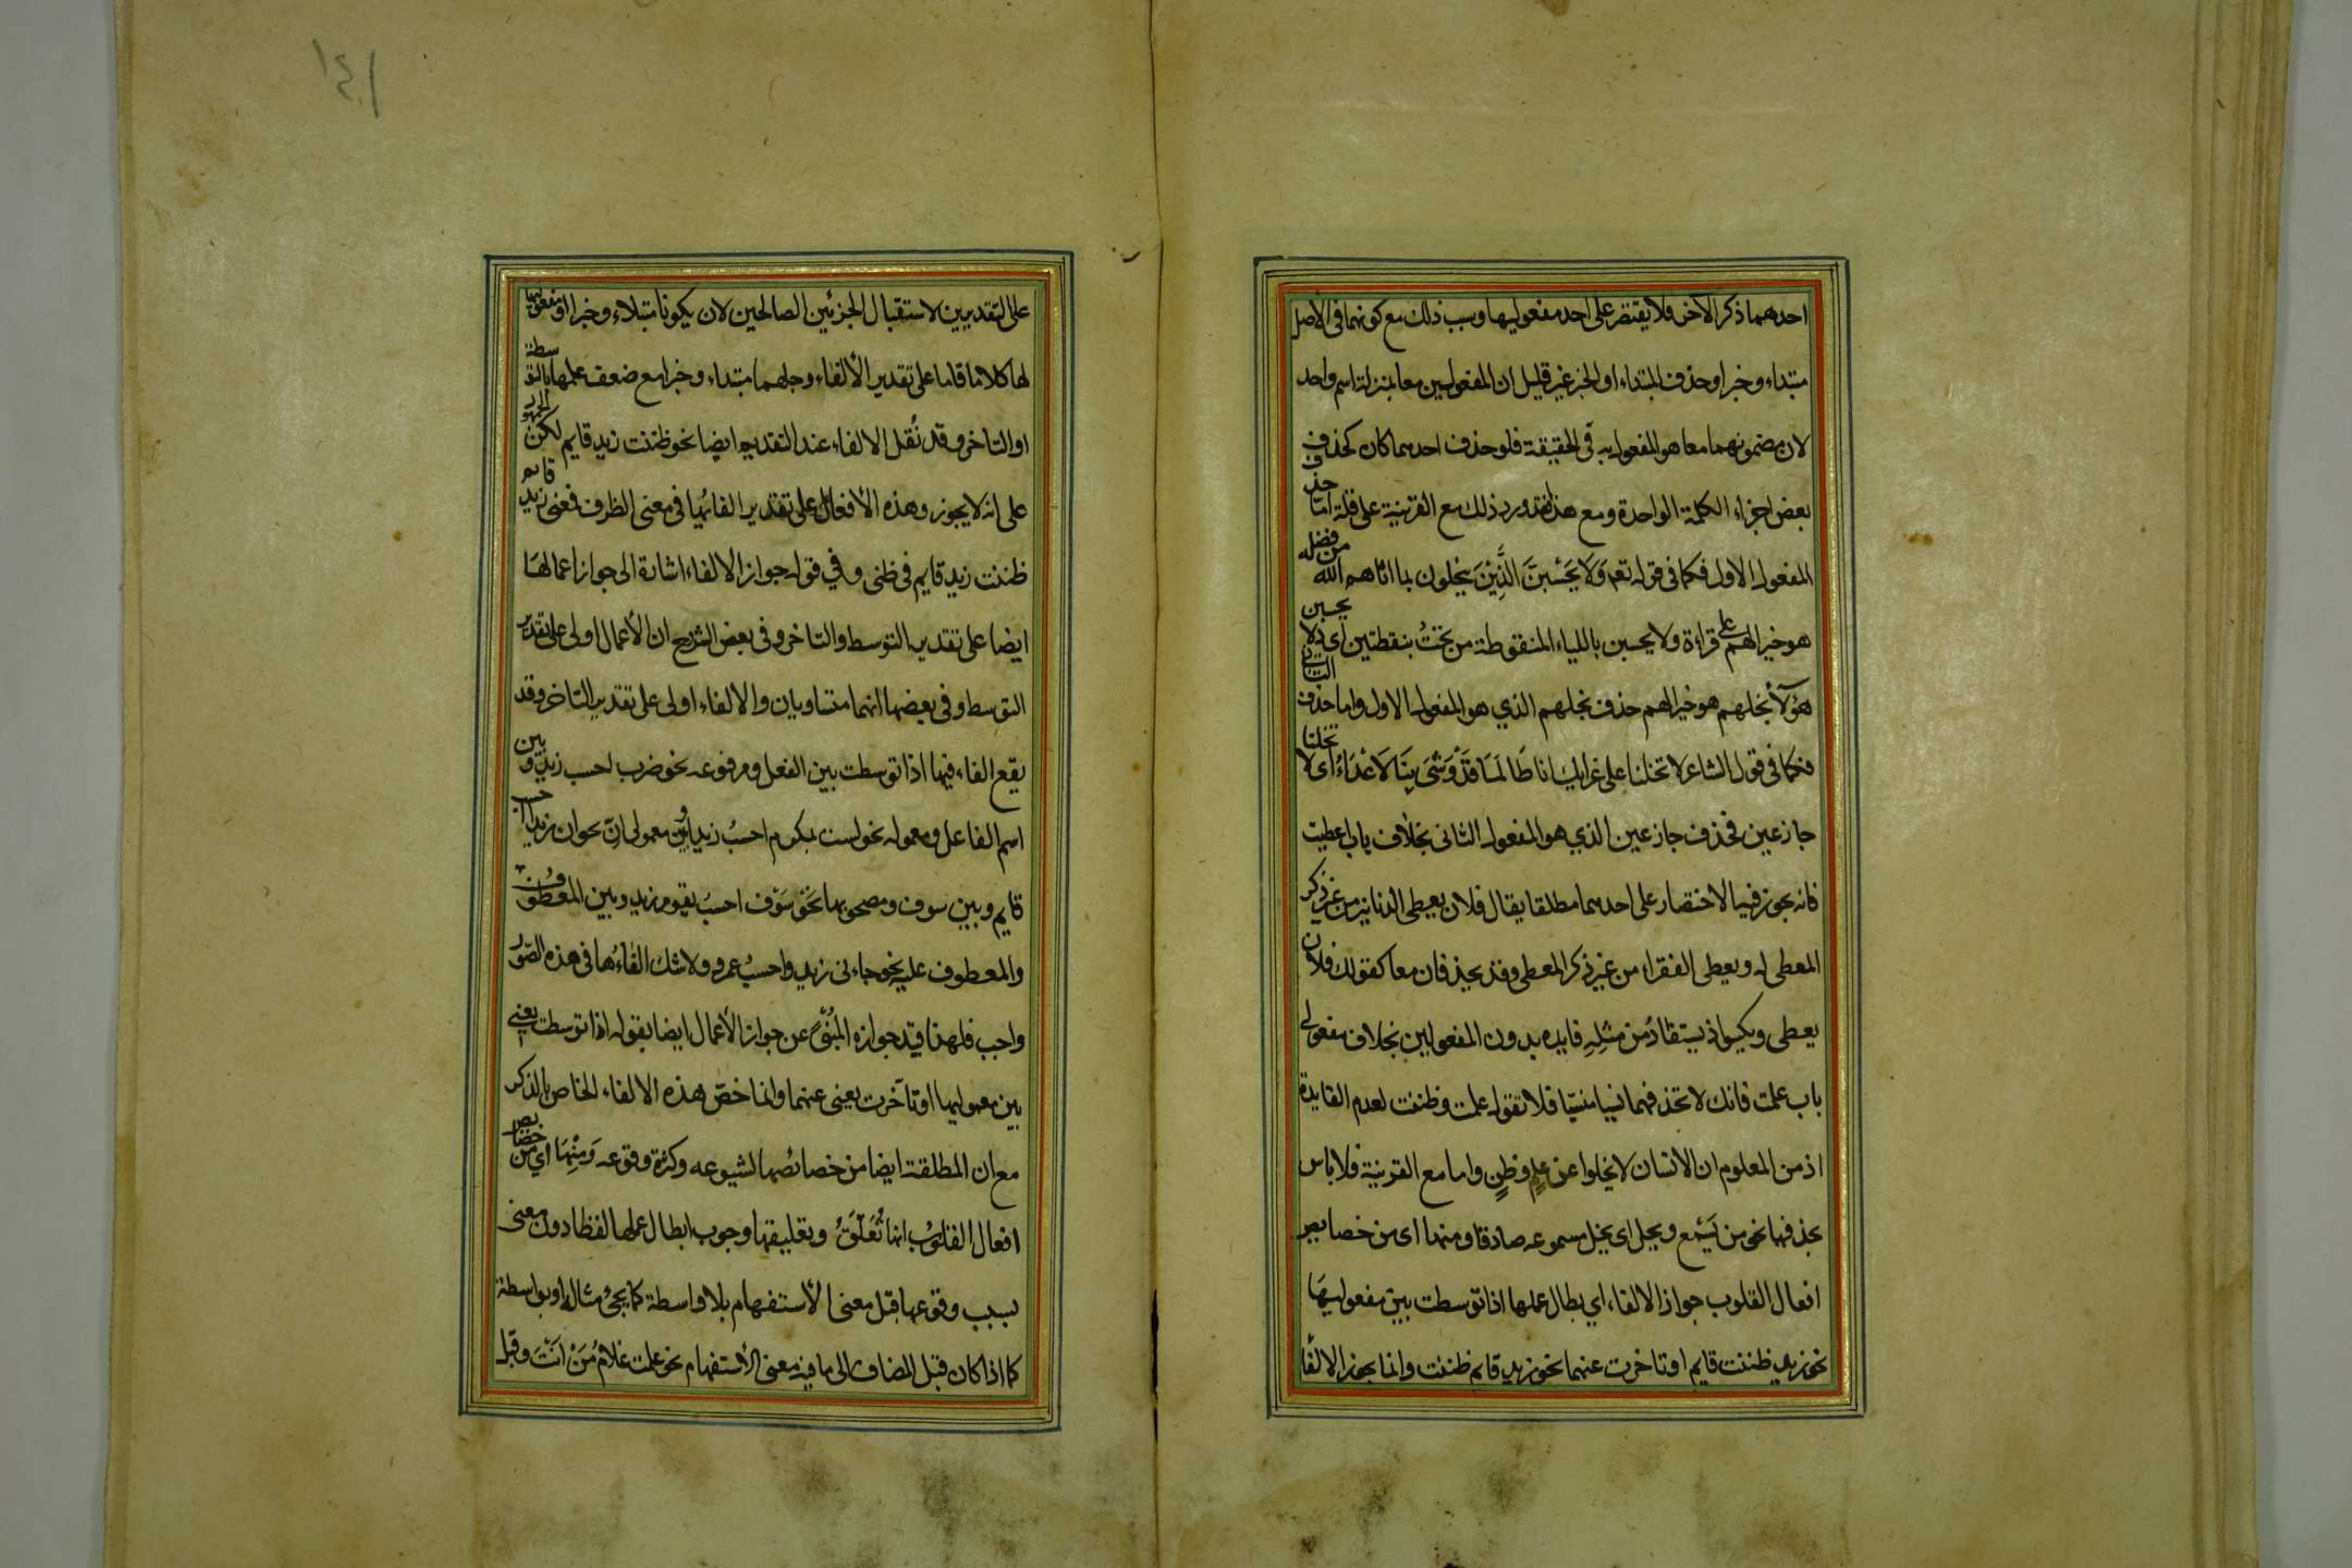 احدهما ذكر الاخر فلا يقتصر على احد مفعوليها وسبب ذلك مع كونهما فى الاصل
مبتداء وخبرا وحذف المبتداء او الخبر غير قليل ان المفعولين معا بمنزلة اسم واحد
لان مضمونهما معا هو المفعول به فى الحقيقة فلو حذف احدهما كان كحذف
بعض اجزاء الكلمة الواحدة ومع هذا فقد ورد ذلك مع القرينية على قلة اما حذف
المفعول الاول فكما فى قوله تعم وَلَا يَحْسَبَنَّ الَّذِيْنَ يبخلون بما اتاهم الله من فضله
هو خيرا لهم على قراءة ولا يحسبن بالياء المنقوطة من تحتُ بنقطتين اى ولا يحسبن
هؤلآ بخلهم هو خيرا لهم حذف بخلهم الذي هو المفعول الاول واما حذف الثانى
فكما فى قول الشاعر لا تخلنا على غرايك انا طَالَمَا قَدْ وَشَىَ بِنَا لَاعْدَاءُ اى لا تخلنا
جازعين فحذف جازعين الذي هو المفعول الثانى بخلاف باب اعطيت
فانه يجوز فيها الاختصار على احدهما مطلقا يقال فلان يعطى الدنانير من غير ذكر
المعطى له ويعطى الفقراء من غير ذكر المعطى وقد يحذفان معا كقولك فلان
يعطى ويكسو اذ يستفادُ من مثلِهِ فايده بدون المفعولين بخلاف مفعولى
باب علمت فانك لا تحذفهما نسيا منسيّا فلا تقول علمت وظننت لعدم الفايدة
اذ من المعلوم ان الانسان لا يخلوا عن علمٍ وظنٍ واما مع القرينية فلا باس
بحذفهما نحو من يَسْمع ويخل اى يخل مسموعه صادقا ومنها اى من خصايص
افعال القلوب جواز الالفاء اي بطال عملها اذا توسطت بين مفعوليهَا
نحو زيد ظننت قايم او تاخرت عنهما نحو زيد قايم ظننت وانما يجوز الالفا
على التقديرين لاستقبال الجزئين الصالحين لان يكونا مبتداء وخبرا او مفعوليها
لها كلاما قاما على تقدير الألفاء وجلهما مبتداء وخبرا مع ضعف عملها بالتوسطة
او التاخر وقد نُقل الالفاء عند التقديم ايضا نحو ظننت زيد قايم لكن الجمهور
على انه لا يجوز وهذه الأفعال على تقدير الفائها فى معنى الظرف فمعنى زيد قايم
ظننت زيد قايم فى ظنى وفي قوله جواز الالفاء اشارة الى جواز اعمالهَا
ايضا على تقدير التوسط والتاخر وفى بعض الشروح ان الأعمال اولى على تقدير
التوسط وفى بعضها انهما متساويان والالفاء اولى على تقدير التاخر وقد
يقع الفاء فيها اذا توسطت بين الفعل ومرفوعه نحو ضرب احسب زيد وبين
اسم الفاعل ومعموله نحو لست بمكرم احسبُ زيدا وبين معمولى انّ نحو ان زيدا احسب
قايم وبين سوف ومصحوبها نحو سَوْف احسبُ يقوم زيد وبين المعطوف
والمعطوف عليه نحو جاءنى زيد واحسبُ عمرو ولا شك الفاءُها فى هذه الصّور
واجب فلهذا قيّد جوازه المُنبئ عن جواز الأعمال ايضا بقوله اذا توسطت يعنى
بين معموليها او تأخرت يعنى عنهما وانما خصّ هذه الالفاء الخاص بالذكر
مع ان المطلقة ايضا من خصائصها لشيوعه وكثرة وقوعه وَمِنْهَا اي من خصايص
افعال القلوب انها تُعَلّقُ وتعليقها وجوب ابطال عملها لفظا دون معنى
بسبب وقوعها قبل معنى الأستفهام بلا واسطة كما يجئ مثاله او بواسطة
كما اذا كان قبل المضاف الى ما فيه معنى الأستفهام نحو علمت غلامُ مَنْ انْتَ وقبل
١٤١